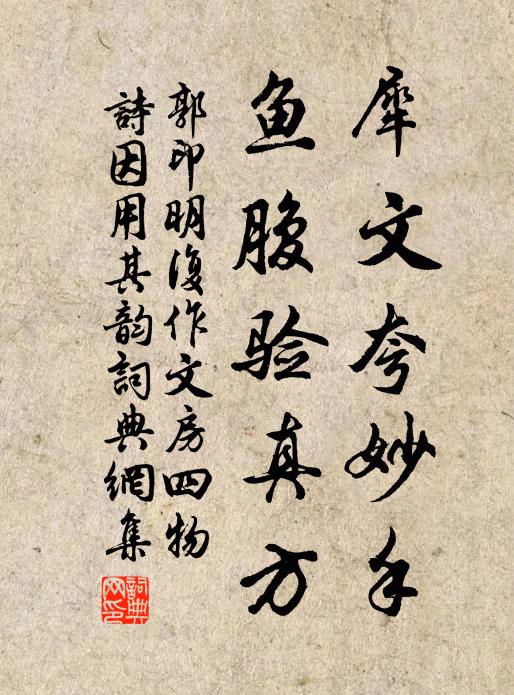 犀文夸妙手
鱼腹验真方
郭印明復作文房四物
詩因用其韵詞典網集
詞典
网印